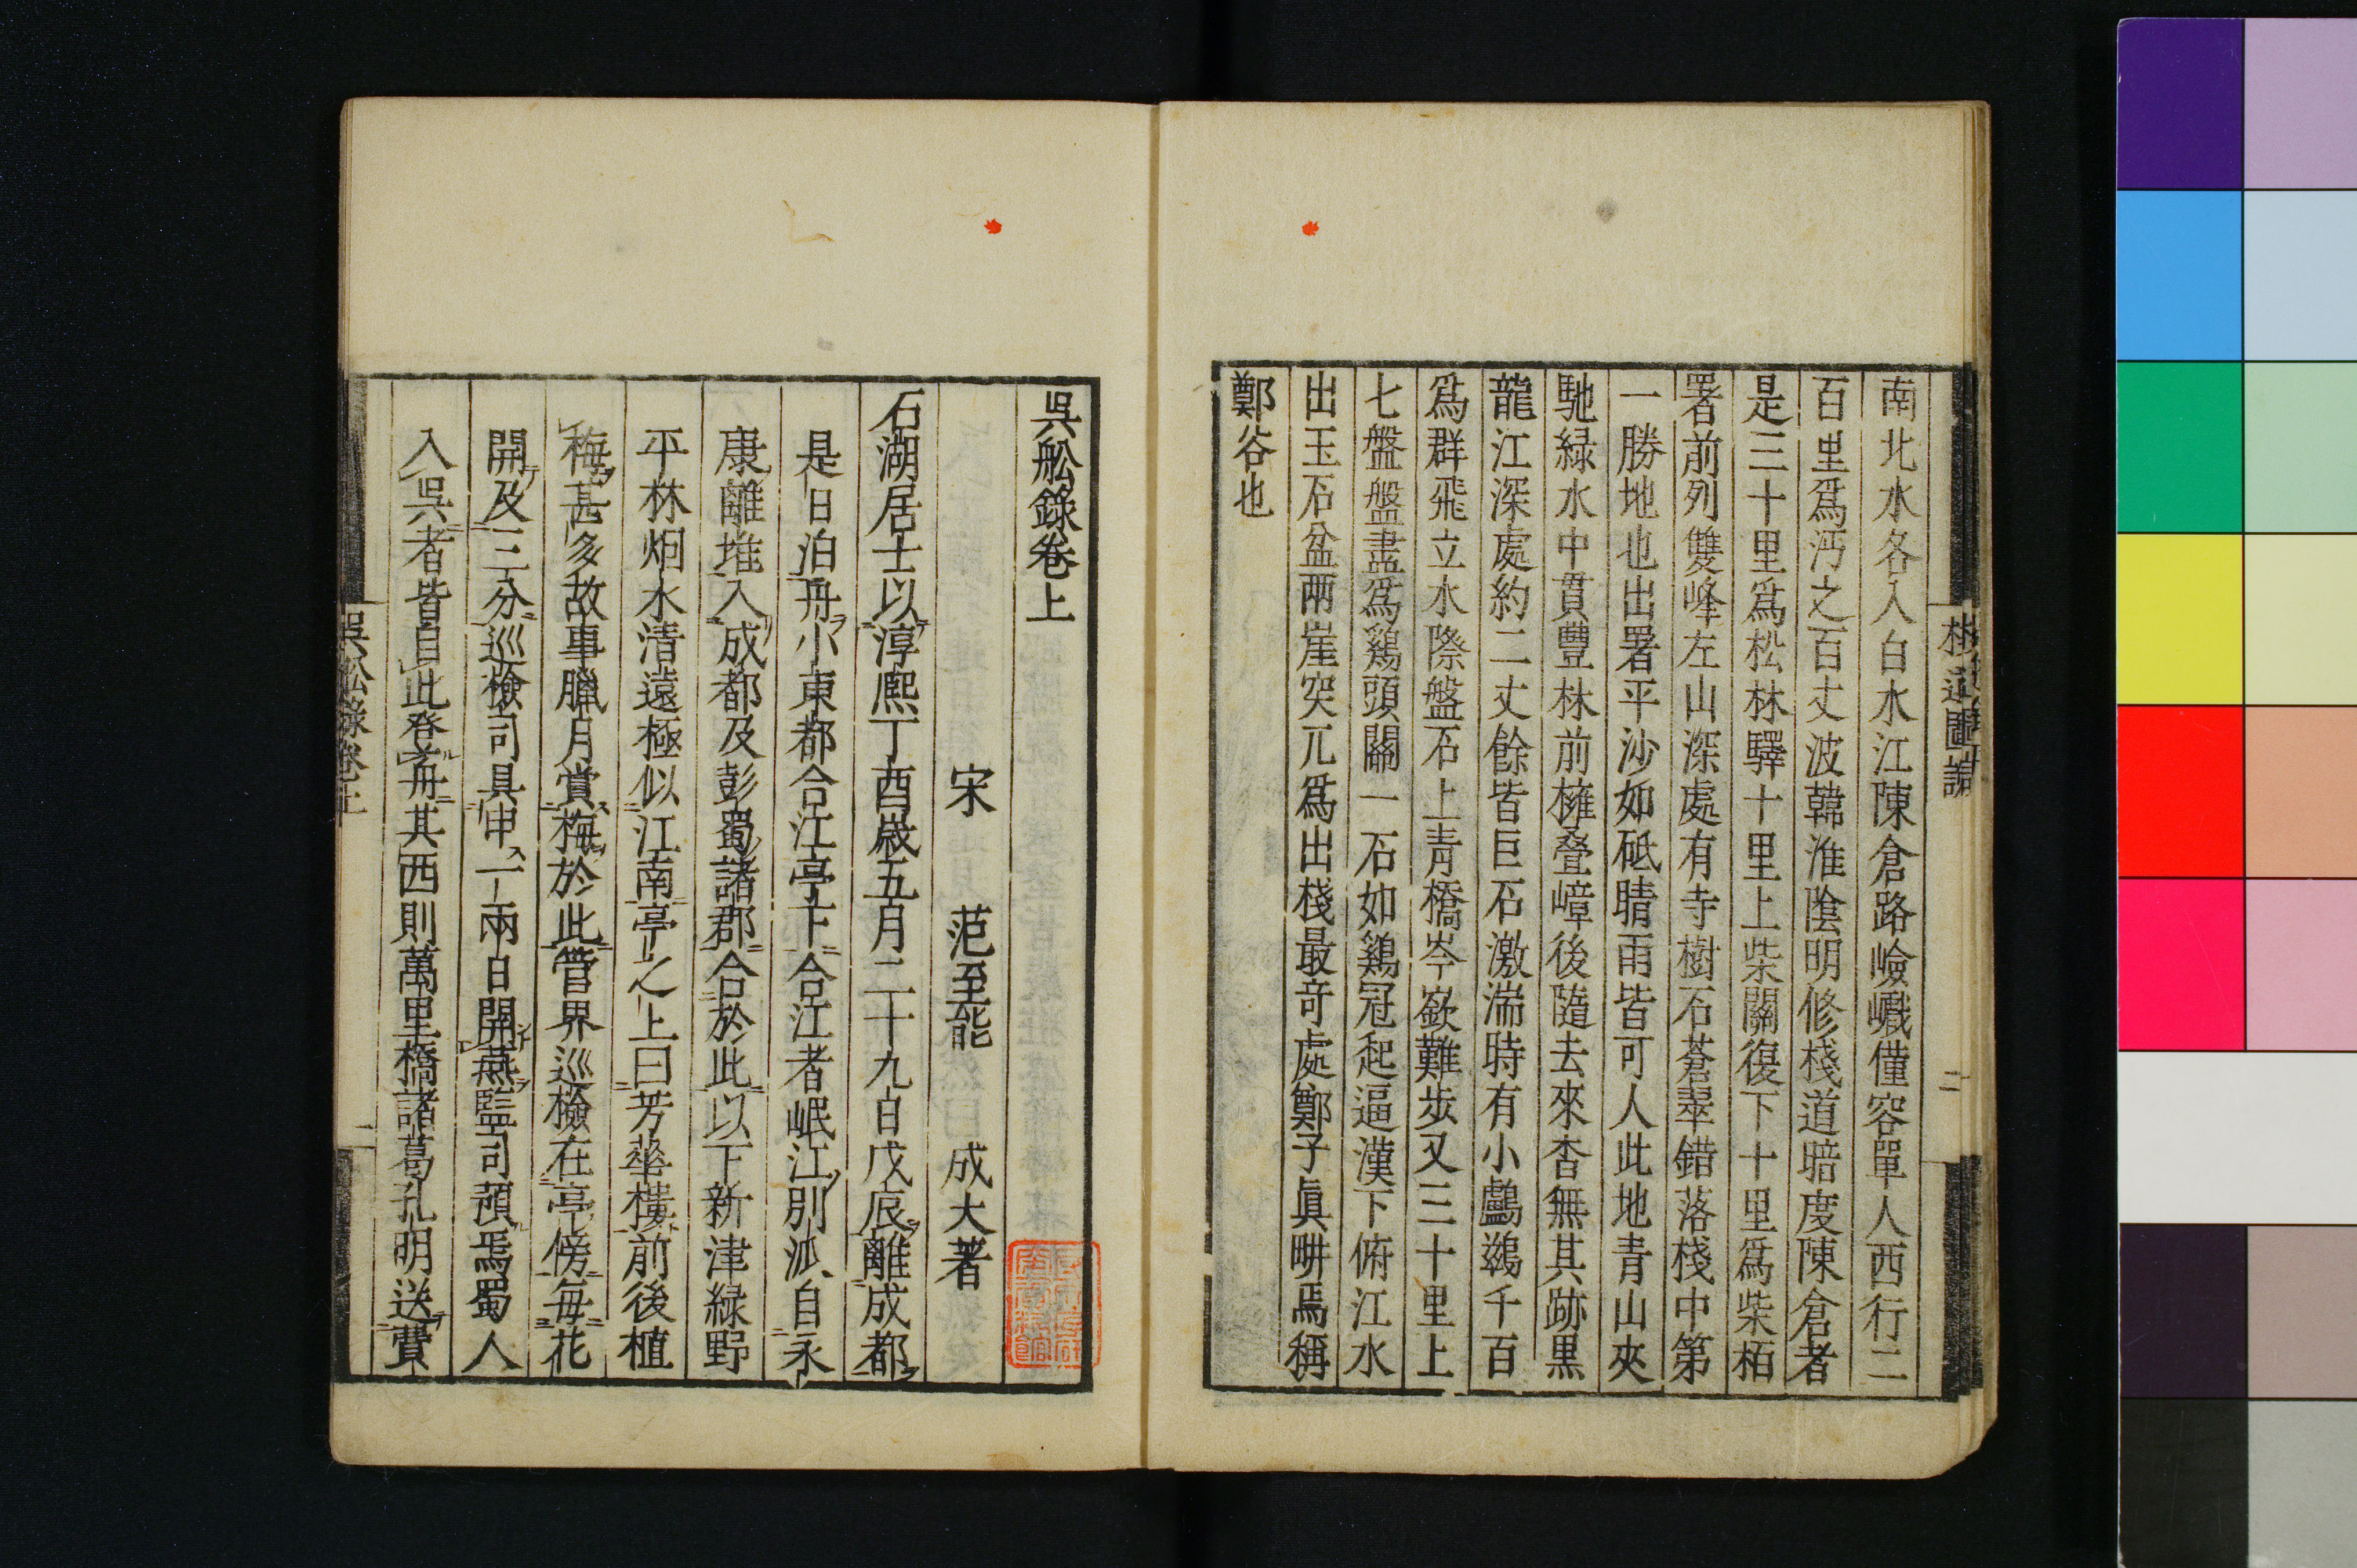 南北水各入白水江陳倉路嶮巇僅容單人西行二
百里爲沔之百丈波韓淮陰明修棧道暗度陳倉者
是三十里爲松林驛十里上柴關復下十里爲柴栢
署前列雙峰左山深處有寺樹石蒼翠錯落棧中第
一勝地也出署平沙如砥晴雨皆可人此地青山夾
馳緑水中貫豐林前擁叠嶂後隨去來杳無其跡黒
龍江深處約二丈餘皆巨石激湍時有小鸕鷀千百
爲群飛立水際盤石上青橋岑嶔難步又三十里上
七盤盤盡爲鷄頭關一石如鷄冠起逼漢下俯江水
出玉石盆兩崖突兀爲出棧最竒處鄭子眞畊焉稱
鄭谷也
二
吳舩錄卷上
宋 范至能 成大著
石湖居士以淳熙丁酉歲五月二十九日戊辰離成都
是日泊舟小東都合江亭下合江者岷江別派自永
康離堆入成都及彭蜀諸郡合於此以下新津緑野
平林烟水清遠極似江南亭之上曰芳華樓前後植
梅甚多故事臘月賞梅於此管界巡檢在亭傍每花
開及三分巡檢司具申一兩日開燕監司預焉蜀人
入吳者皆自此登舟其西則萬里橋諸葛孔明送費
吳舩錄卷上
一